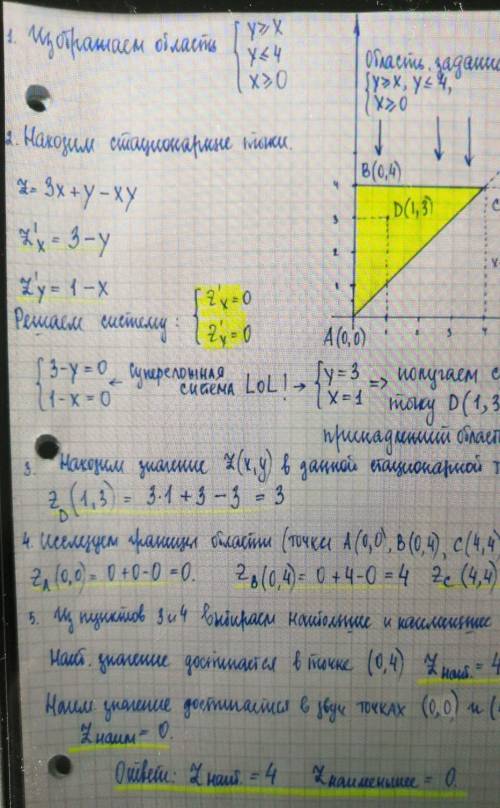 1. Изображаем область { y⩾x
y⩽4
x⩾0
Область, задание
{ y⩾x, y⩽4,
x⩾0
2. Находим стационарные точки.
z = 3x + y − xy
z'x = 3 − y
z'y = 1 − x
B(0,4)
4
C
3
D(1,3)
2
1
1 2 3 4
A(0,0)
Решаем систему: { z'x = 0
z'y = 0
{ 3−y=0
1−x=0
← суперсложная
система LOL! →
{ y=3
x=1
=> получаем с
точку D(1,3
принадлежит област
3. Находим значение z(x,y) в данной стационарной т
zD(1,3) = 3·1 + 3 − 3 = 3
4. Исследуем границы области (точки A(0,0), B(0,4), C(4,4)
zA(0,0) = 0+0−0 = 0. zB(0,4) = 0+4−0 = 4 zC(4,4)
5. Из пунктов 3 и 4 выбираем наибольшее и наименьшее
Наиб. значение достигается в точке (0,4) zнаиб. = 4
Наим. значение достигается в двух точках (0,0) и (
zнаим = 0.
Ответ: zнаиб. = 4 zнаименьшее = 0.